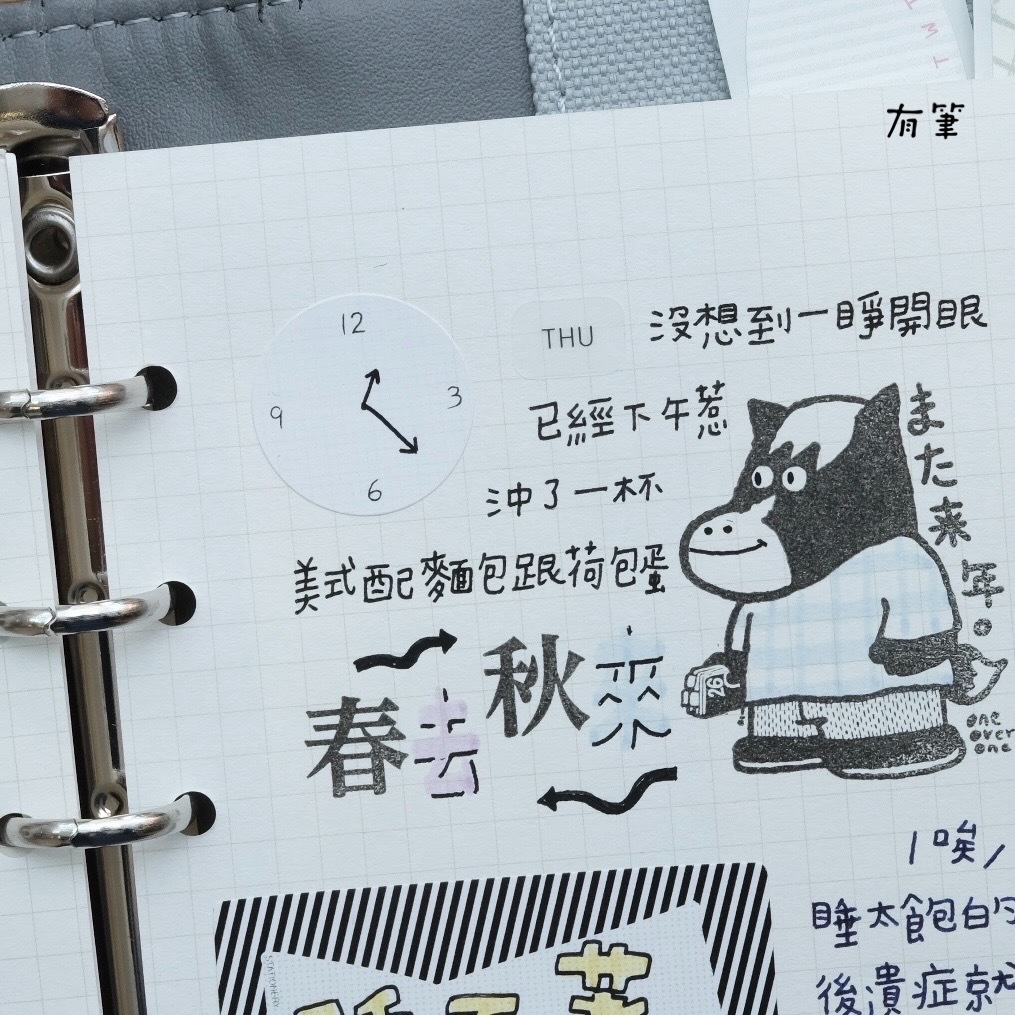 有筆
12
3
6
9
THU
沒想到一睜開眼
已經下午惹
沖了一杯
美式配麵包跟荷包蛋
また来年。
春去
秋來
26
one
over
one
唉
睡太飽的
後潰症就
STATIONERY